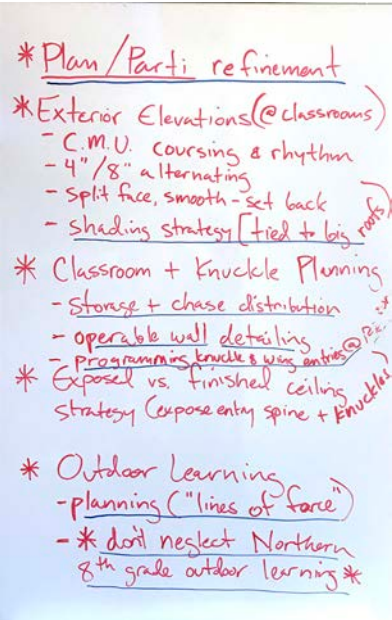 * Plan/Parti refinement
* Exterior Elevations (@ classrooms)
- C.M.U. coursing & rhythm
- 4"/8" alternating
- split face, smooth - set back
- shading strategy [tied to big roofs]
* Classroom + Knuckle Planning
- Storage + chase distribution
- operable wall detailing
- programming knuckle & wing entries @
* Exposed vs. finished ceiling
strategy (expose entry spine + knuckles)
* Outdoor Learning
- planning ("lines of force")
- * don't neglect Northern
8th grade outdoor learning *